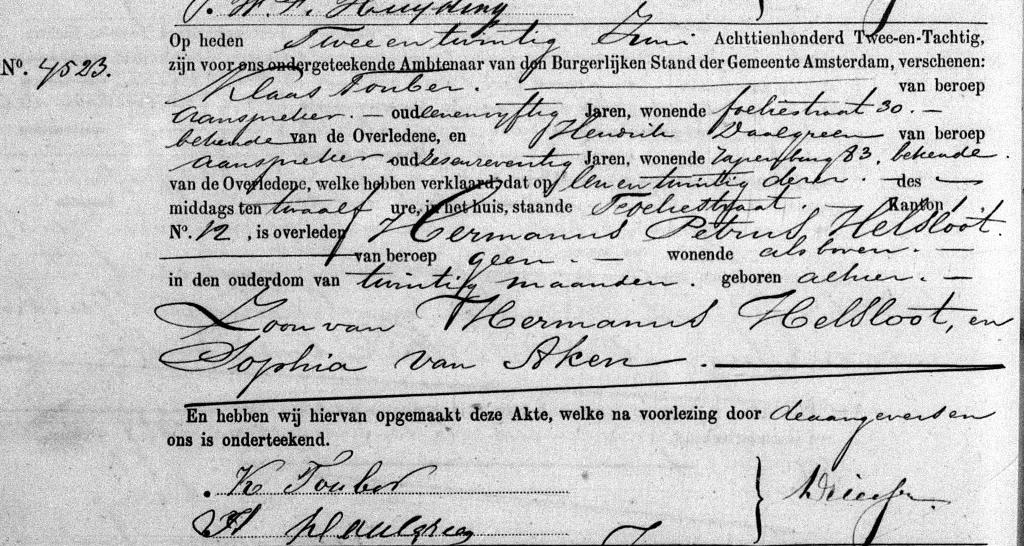 P. W. F. Huyding
Op heden Twee en twintig Juni Achttienhonderd Twee-en-Tachtig,
No. 4523. zijn voor ons ondergeteekende Ambtenaar van den Burgerlijken Stand der Gemeente Amsterdam, verschenen:
Klaas Touber. — van beroep
aanspreker. — oud zevenenvijftig Jaren, wonende foeliestraat 30. —
bekende van de Overledene, en Hendrik Daalgreen van beroep
aanspreker oud zesenzeventig Jaren, wonende Zapenburg 83, bekende.
van de Overledene, welke hebben verklaard, dat op een en twintig dezer. — des —
middags ten twaalf ure, in het huis, staande Foeliestraat. — Kanton
No. 12, is overleden Hermanus Petrus Helsloot.
— van beroep geen. — wonende als boven. —
in den ouderdom van twintig maanden. geboren alhier. —
Zoon van Hermanus Helsloot, en
Sophia van Aken. —
En hebben wij hiervan opgemaakt deze Akte, welke na voorlezing door de aangevers en
ons is onderteekend.
K Touber
H Daalgreen